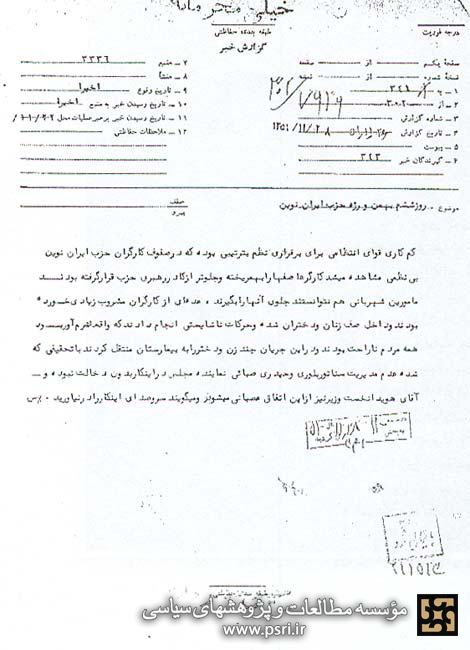 خیلی محرمانه
درجه فوریت
طبقه بندی حفاظتی
گزارش خبر
صفحه یکم از صفحه
نسخه شماره از نسخه
۱ - به ۳۴۱
۲ - از ۳۰۲
۳ - شماره گزارش
۴ - تاریخ گزارش ۱۳۵۱/۱۱/۲۸
۵ - پیوست
۶ - گیرندگان خبر ۳۴۳
۷ - منبع ۳۳۳۶
۸ - منشأ
۹ - تاریخ وقوع اخیرا
۱۰ - تاریخ رسیدن خبر به منبع اخیرا
۱۱ - تاریخ رسیدن خبر برهبر عملیات محل
۱۲ - ملاحظات حفاظتی
موضوع - روز ششم بهمن و رژه حزب ایران نوین
عطف
پیرو
کم کاری قوای انتظامی برای برقراری نظم بترتیبی بوده که در صفوف کارگران حزب ایران نوین
بی نظمی مشاهده میشد کارگرها صفها را بهم ریخته و جلوتر از کادر رهبری حزب قرار گرفته بودند
مامورین شهربانی هم نتوانستند جلوی آنها را بگیرند ، عده ای از کارگران مشروب زیادی خورده
بودند و داخل صف زنان و دختران شده و حرکات ناشایستی انجام دادند که واقعا شرم آور بود
همه مردم ناراحت بودند در این جریان چند زن و دختر را به بیمارستان منتقل کردند با تحقیقی که
شده عدم مدیریت سناتور بلوری و حیدری صبائی نماینده مجلس در اینکار بدون دخالت نبوده و
آقای هویدا نخست وزیر نیز از این اتفاق عصبانی میشوند و میگویند سر و صدای اینکار را در نیاورید . م س
مؤسسه مطالعات و پژوهشهای سیاسی
www.psri.ir